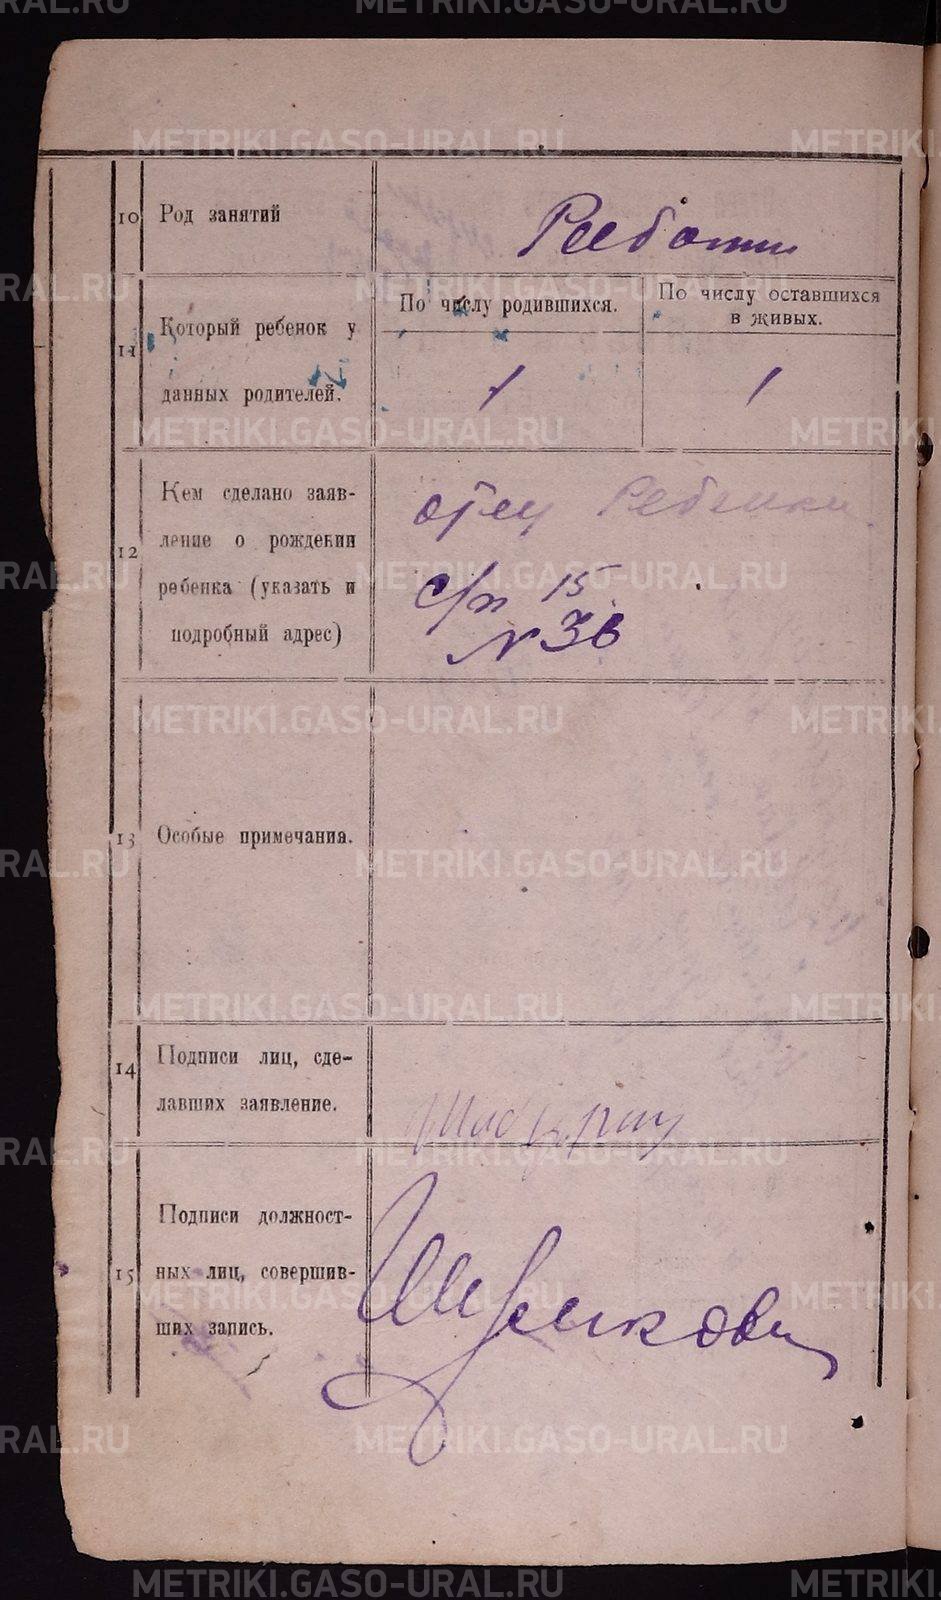 METRIKI.GASO-URAL.RU
10 Род занятий
По числу родившихся.
По числу оставшихся
в живых.
11 Который ребенок у
данных родителей.
1
1
12 Кем сделано заяв-
ление о рождении
ребенка (указать и
подробный адрес)
отец
15
№ 36
13 Особые примечания.
14 Подписи лиц, сде-
лавших заявление.
15 Подписи должност-
ных лиц, совершив-
ших запись.